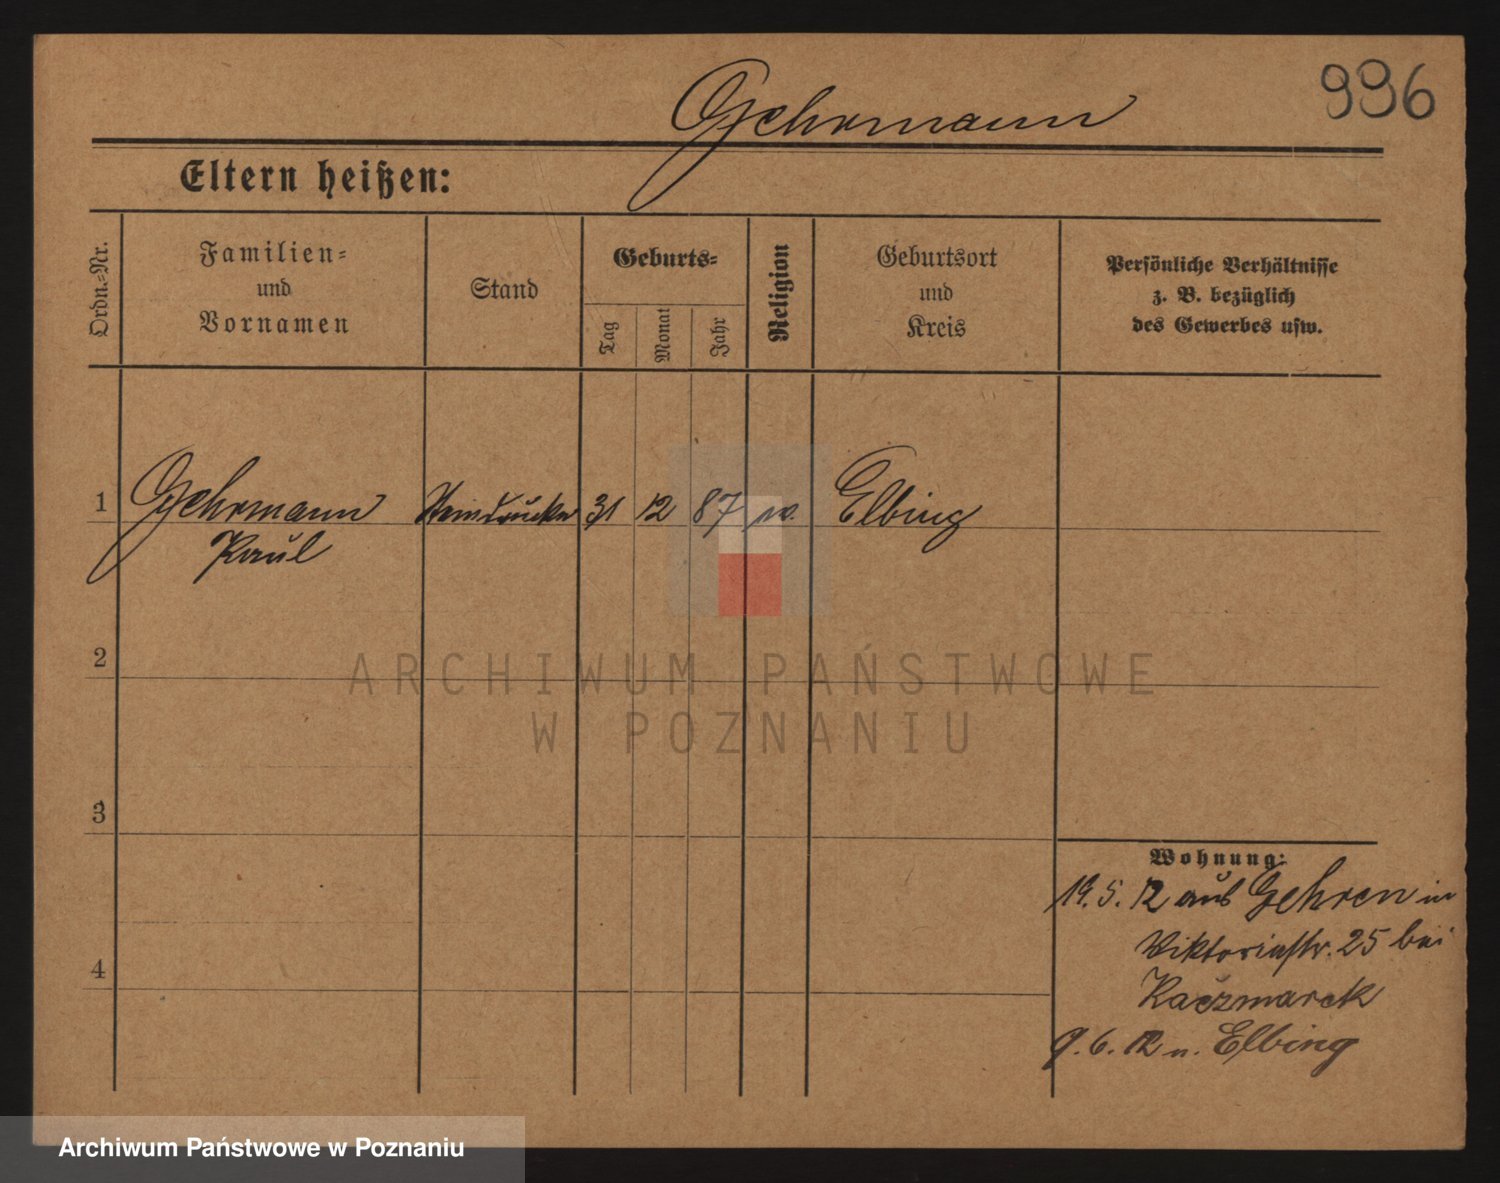 996
Gehrmann
Eltern heißen:
Ordn.-Nr.
Familien-
und
Vornamen
Stand
Geburts-
Tag
Monat
Jahr
Religion
Geburtsort
und
Kreis
Persönliche Verhältnisse
z. B. bezüglich
des Gewerbes usw.
1 Gehrmann Steindrucker 31 12 87 Elbing
Paul
2
3
4
ARCHIWUM PAŃSTWOWE
W POZNANIU
Wohnung:
19. 5. 12 aus Gehren in
Viktoriastr. 25 bei
Kaczmarek
9. 6. 12 n. Elbing
Archiwum Państwowe w Poznaniu